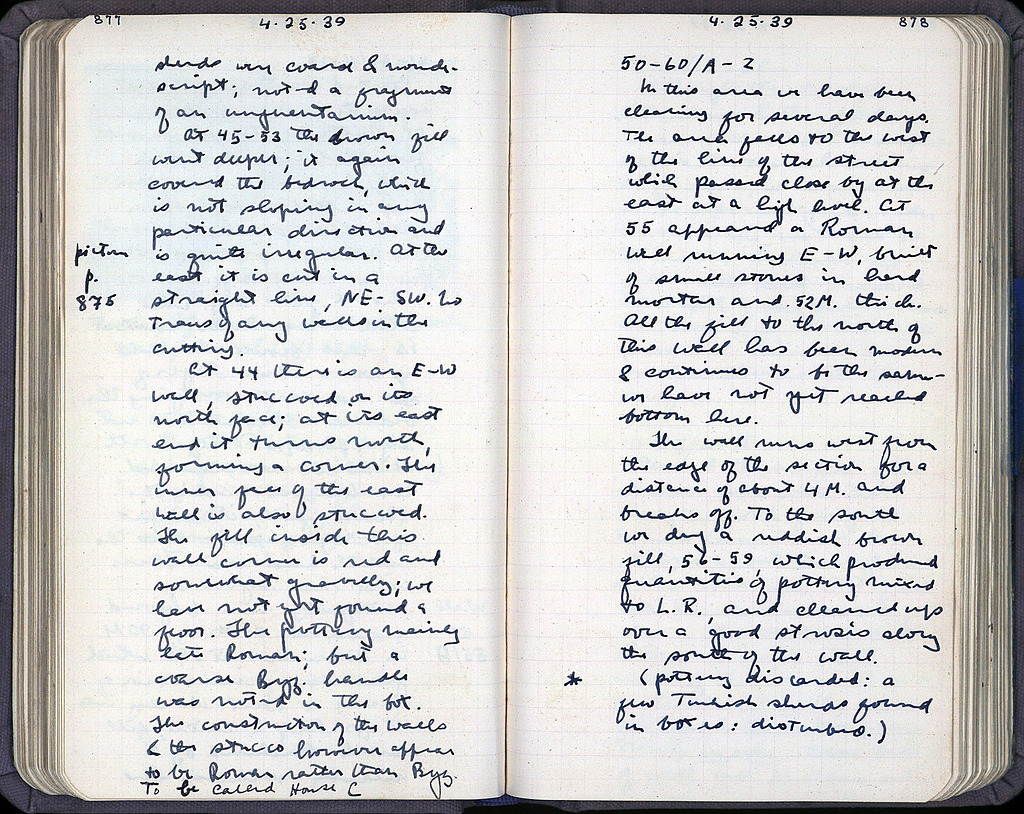 877
4·25·39
sherds very coarse & nonde-
script; noted a fragment
of an unguentarium.
At 45-53 the brown fill
went deeper; it again
covered the bedrock, which
is not sloping in any
particular direction and
is quite irregular. At the
east it is cut in a
straight line, NE-SW. No
trace of any walls in the
cutting.
picture
p.
876
At 44 there is an E-W
wall stuccoed on its
north face; at its east
end it turns north,
forming a corner. The
inner face of the east
wall is also stuccoed.
The fill inside this
wall corner is red and
somewhat gravelly; we
have not yet found a
floor. The pottery mainly
late Roman; but a
coarse Byz. handle
was noted in the box.
The construction of the walls
& the stucco however appear
to be Roman rather than Byz.
To be called House C
4·25·39
878
50-60/A-Z
In this area we have been
clearing for several days.
The area falls to the west
of the line of the street
which passed close by at the
east at a high level. At
55 appeared a Roman
wall running E-W, built
of small stones in hard
mortar and .52M. thick.
All the fill to the north of
this wall has been modern
& continues to be the same–
we have not yet reached
bottom here.
The wall runs west from
the edge of the section for a
distance of about 4M. and
breaks off. To the south
we dug a reddish brown
fill, 56-59, which produced
quantities of pottery mixed
to L.R., and cleaned up
over a good strosis along
the south of the wall.
* (pottery discarded: a
few Turkish sherds found
in boxes: disturbed.)